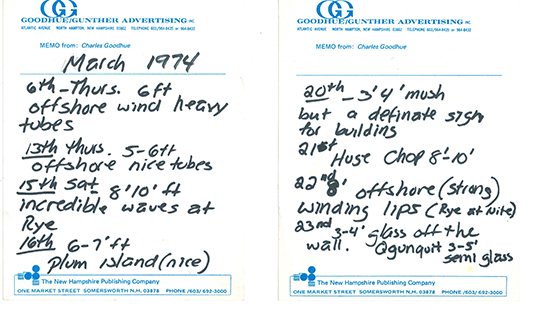 GOODHUE/GUNTHER ADVERTISING INC.
ATLANTIC AVENUE NORTH HAMPTON, NEW HAMPSHIRE 03862 TELEPHONE 603/964-8433 or 964-8432
MEMO from: Charles Goodhue
March 1974
6th - Thurs. 6ft
offshore wind heavy
tubes
13th Thurs. 5-6ft
offshore nice tubes
15th Sat 8'10' ft
incredible waves at
Rye
16th 6-7' ft
Plum island (nice)
The New Hampshire Publishing Company
ONE MARKET STREET SOMERSWORTH N.H. 03878 PHONE /603/ 692-3000
GOODHUE/GUNTHER ADVERTISING INC.
ATLANTIC AVENUE NORTH HAMPTON, NEW HAMPSHIRE 03862 TELEPHONE 603/964-8433 or 964-8432
MEMO from: Charles Goodhue
20th - 3'4' mush
but a definate sign
for building
21st Huge Chop 8'-10'
22nd 8' offshore (strong)
winding lips (Rye at nite)
23rd 3-4' glass off the
wall. Ogunquit 3-5'
semi glass
The New Hampshire Publishing Company
ONE MARKET STREET SOMERSWORTH N.H. 03878 PHONE /603/ 692-3000